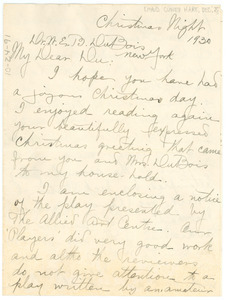 Christmas Night
1930
Dr. W. E. B. DuBois
New York
My Dear Dr.:
I hope you have had
a joyous Christmas day
I enjoyed reading again
your beautifully expressed
Christmas greeting that came
from you and Mrs. DuBois
to my house hold.
I am enclosing a notice
of the play presented by
The Allied Art Centre. Our
Players did very good work
and altho the reviewers
do not give attention to a
play written by an amateur